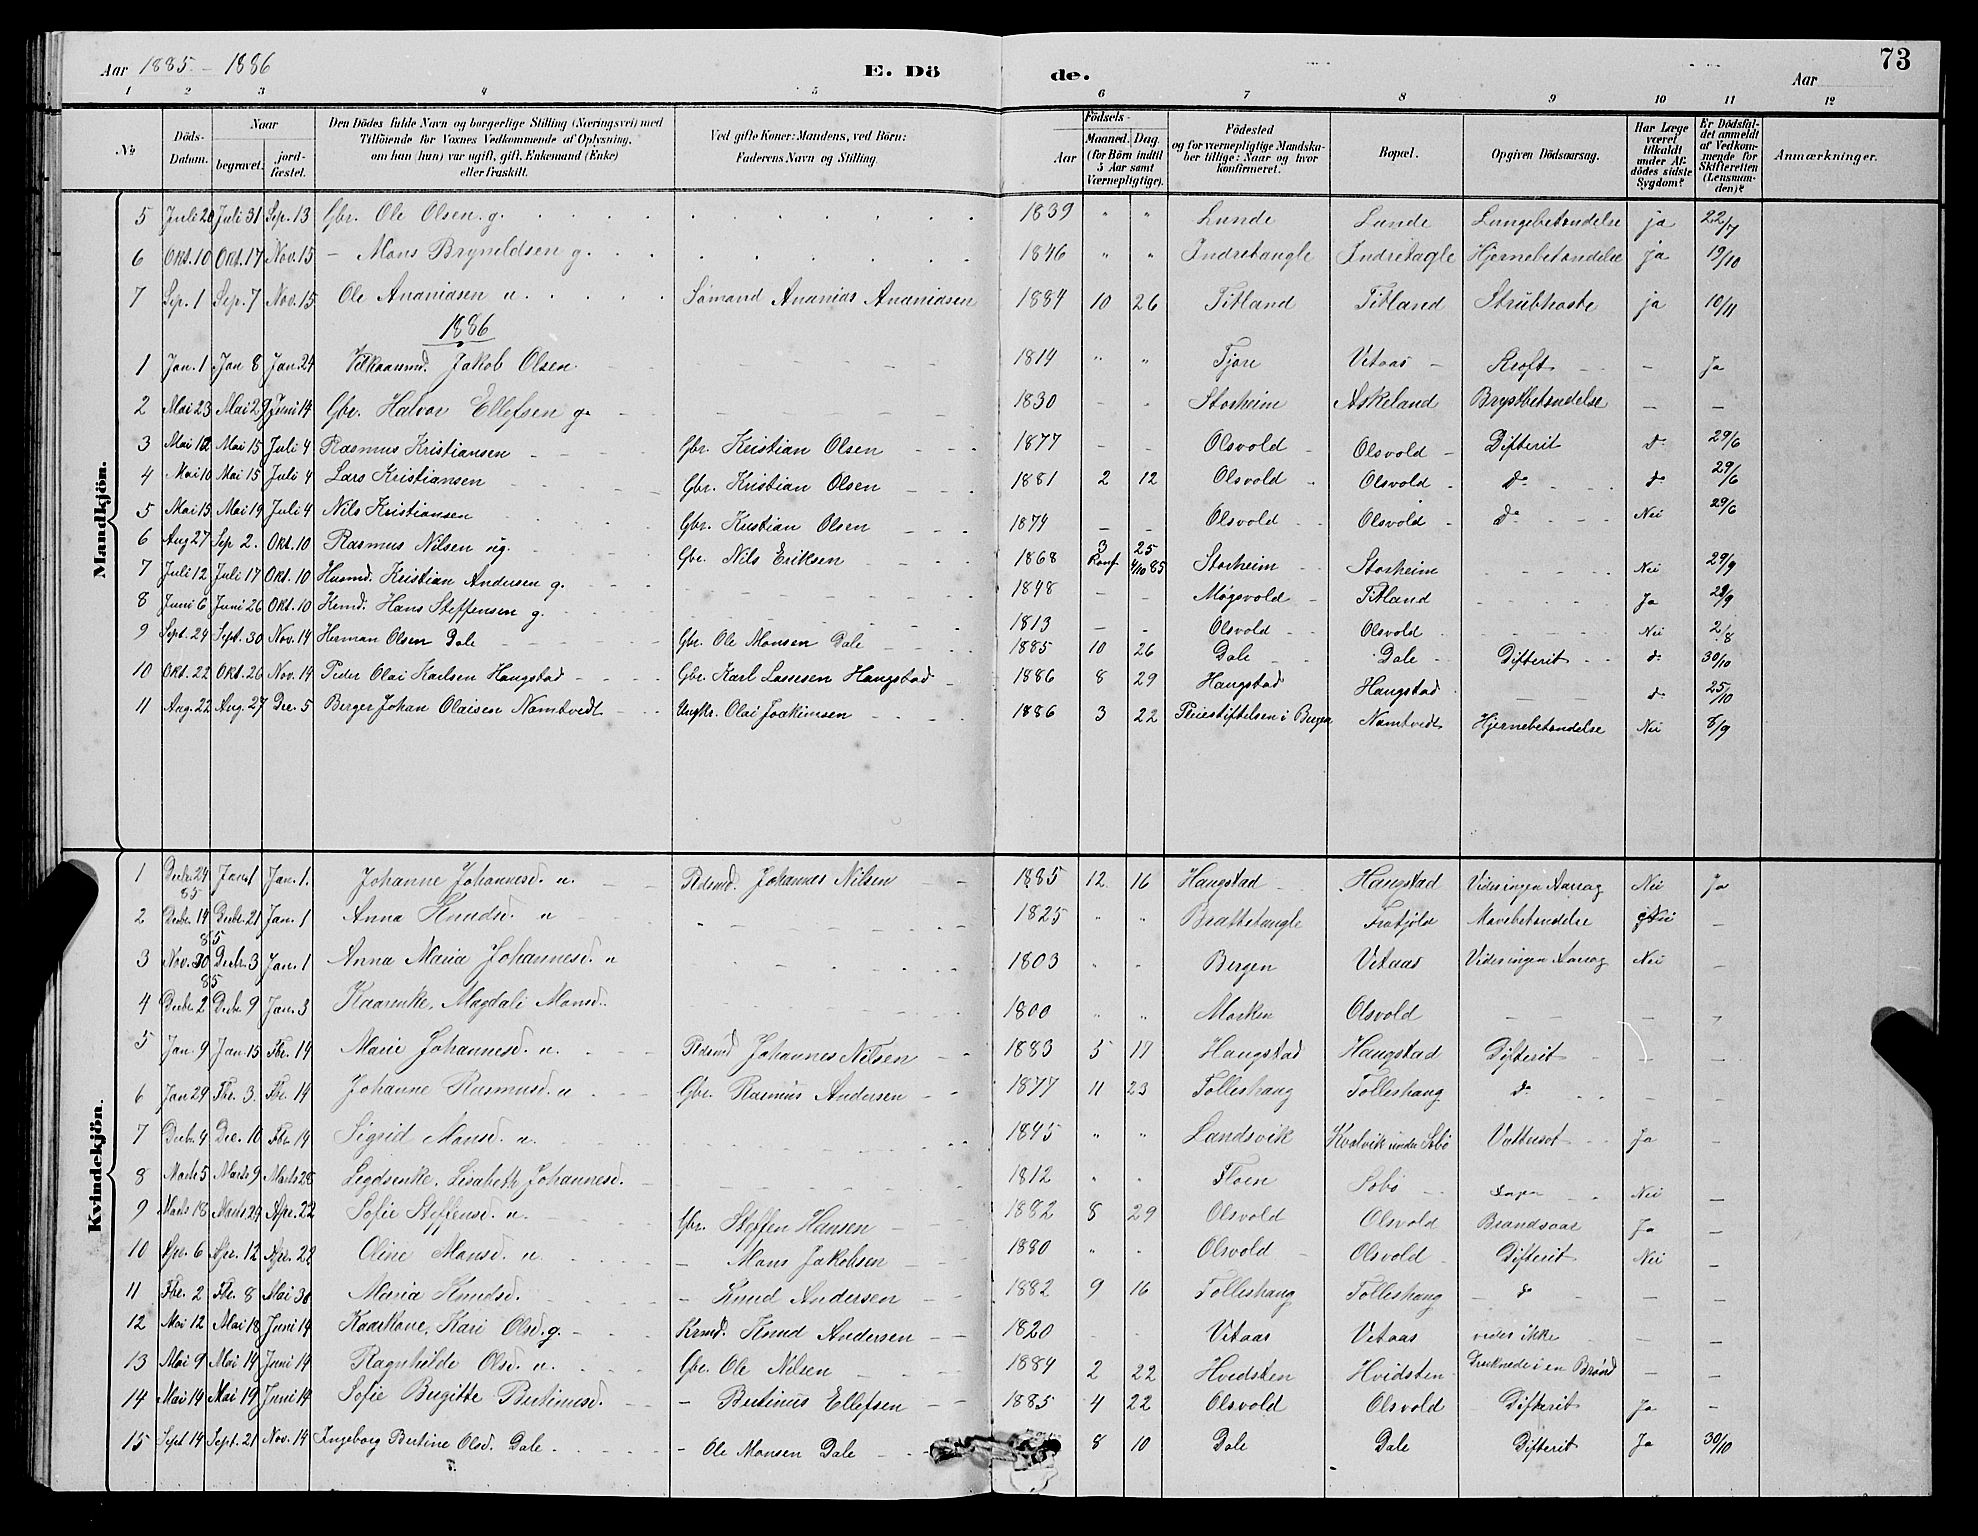 73
Aar 1885 - 1886 E. Dö de. Aar
1 2 3 4 5 6 7 8 9 10 11 12
№ Döds-Datum. Naar begravet. jord-fæstet. Den Dödes fulde Navn og borgerlige Stilling (Næringsvei) med Tilföiende for Voxnes Vedkommende af Oplysning, om han (hun) var ugift, gift, Enkemand (Enke) eller fraskilt. Ved gifte Koner: Mandens, ved Börn: Faderens Navn og Stilling. Födsels- Aar Maaned. Dag. (for Börn indtil 5 Aar samt Værnepligtige). Födested og for værnepligtige Mandskaber tillige: Naar og hvor konfirmeret. Bopæl. Opgiven Dödsaarsag. Har Læge været tilkaldt under Afdödes sidste Sygdom? Er Dödsfaldet anmeldt af Vedkommende for Skifteretten (Lensmanden)? Anmærkninger.
Mandkjön.
5 Juli 20 Juli 31 Sep. 13 Gbr. Ole Olsen g. 1839 " " Lunde Lunde Lungebetændelse ja 22/7
6 Okt. 10 Okt. 17 Nov. 15 - Mons Brynildsen g. 1846 " " Indretangle Indretagle Hjernebetændelse ja 19/10
7 Sep. 1 Sep. 7 Nov. 15 Ole Ananiasen u. Sömand Ananias Ananiasen 1884 10 26 Titland Titland Strubhoste ja 10/11
1886
1 Jan. 1 Jan 8 Jan. 24 Jakob Olsen 1814 " " Vitaas Kræft - Ja
2 Mai 23 Mai 29 Juni 14 Gbr. Halvor Ellefsen g. 1830 - - Storheim Askeland Brystbetændelse - -
3 Mai 12 Mai 15 Juli 4 Rasmus Kristiansen Gbr. Kristian Olsen 1877 - - Olsvold Olsvold Difterit do 29/6
4 Mai 10 Mai 15 Juli 4 Lars Kristiansen Gbr. Kristian Olsen 1881 2 12 Olsvold Olsvold do do 29/6
5 Mai 15 Mai 19 Juli 4 Nils Kristiansen Gbr. Kristian Olsen 1874 - - Olsvold Olsvold do Nei 29/6
6 Aug 27 Sep 2. Okt. 10 Rasmus Nilsen ug. Gbr. Nils Eriksen 1868 3 25 Konf. 4/10 85 Storheim Storheim Nei 29/9
7 Juli 12 Juli 17 Okt. 10 Husmd. Kristian Andersen g. 1848 - - Mogsvold Titland Ja 29/9
8 Juni 6 Juni 26 Okt. 10 Hans Steffensen g. 1813 - - Olsvold Olsvold Nei 2/8
9 Sept. 24 Sept. 30 Nov. 14 Herman Olsen Dale Gbr. Ole Monsen Dale 1885 10 26 Dale Dale Difterit do 30/10
10 Okt. 22 Okt. 26 Nov. 14 Peder Olai Karlsen Haugstad Gbr. Karl Lassesen Haugstad 1886 8 29 Haugstad Haugstad - do 25/10
11 Aug. 22 Aug. 27 Dec. 5 Berger Johan Olaisen Namtvedt Ungkr. Olai Joakimsen 1886 3 22 Pleiestiftelsen i Bergen Namtvedt Hjernebetændelse Nei 8/9
Kvindekjön.
1 Decbr. 24 85 Jan. 1 Jan. 1. Johanne Johannesd. u. Johannes Nilsen 1885 12 16 Haugstad Haugstad Vides ingen Aarsag Nei Ja
2 Decbr. 14 85 Decbr. 21 Jan. 1 Anna Knudsd. u 1825 " " Brattetangle Mavebetændelse Nei -
3 Nov. 30 85 Decbr. 3 Jan. 1 Anna Maria Johannesd. u 1803 " " Bergen Vitaas Vides ingen Aarsag Nei -
4 Decbr. 2 Decbr. 9 Jan. 3 Kaarenke, Magdali Monsd. 1800 " " Morken Olsvold - - -
5 Jan. 9 Jan. 15 Fbr. 14 Marie Johannesd. u. Johannes Nilsen 1883 5 17 Haugstad Haugstad Difterit - -
6 Jan 29 Fbr. 3. Fbr. 14 Johanne Rasmusd. u Gbr. Rasmus Andersen 1877 11 23 Tolleshaug Tolleshaug do - -
7 Decbr. 4 Dec. 10 Fbr. 14 Sigrid Monsd. u. 1845 " " Landsvik Kvalvik under Sæbö Vattersot Ja -
8 Marts 5 Marts 9 Marts 28 Legdsenke, Lisabeth Johannesd. 1812 " " Floen Sæbö Nei -
9 Marts 18 Marts 24 Apr. 22 Sofie Steffensd. u. Gbr. Steffen Hansen 1882 8 29 Olsvold Olsvold Brandsaar Ja -
10 Apr. 6 Apr. 12 Apr. 22 Oline Monsd. u - Mons Jakobsen 1880 " " Olsvold Olsvold Difterit Nei -
11 Fbr. 2 Fbr. 8 Mai 30 Maria Knudsd. - Knud Andersen 1882 9 16 Tolleshaug Tolleshaug do - -
12 Mai 12 Mai 18 Juni 14 Kaarkone, Kari Olsd. g. Krmd. Knud Andersen 1820 - - Vitaas Vitaas vides ikke - -
13 Mai 9 Mai 14 Juni 14 Ragnhilde Olsd. u. Gbr. Ole Nilsen 1884 2 22 Hvidsten Hvidsten Druknede i en Brönd - -
14 Mai 14 Mai 19 Juni 14 Sofie Birgitte Bertinusd. - Bertinus Ellefsen 1885 4 22 Olsvold Olsvold Difterit Ja -
15 Sept 14 Sept. 21 Nov. 14 Ingeborg Bertine Olsd. Dale - Ole Monsen Dale 8 10 Dale Dale Difterit Ja 30/10